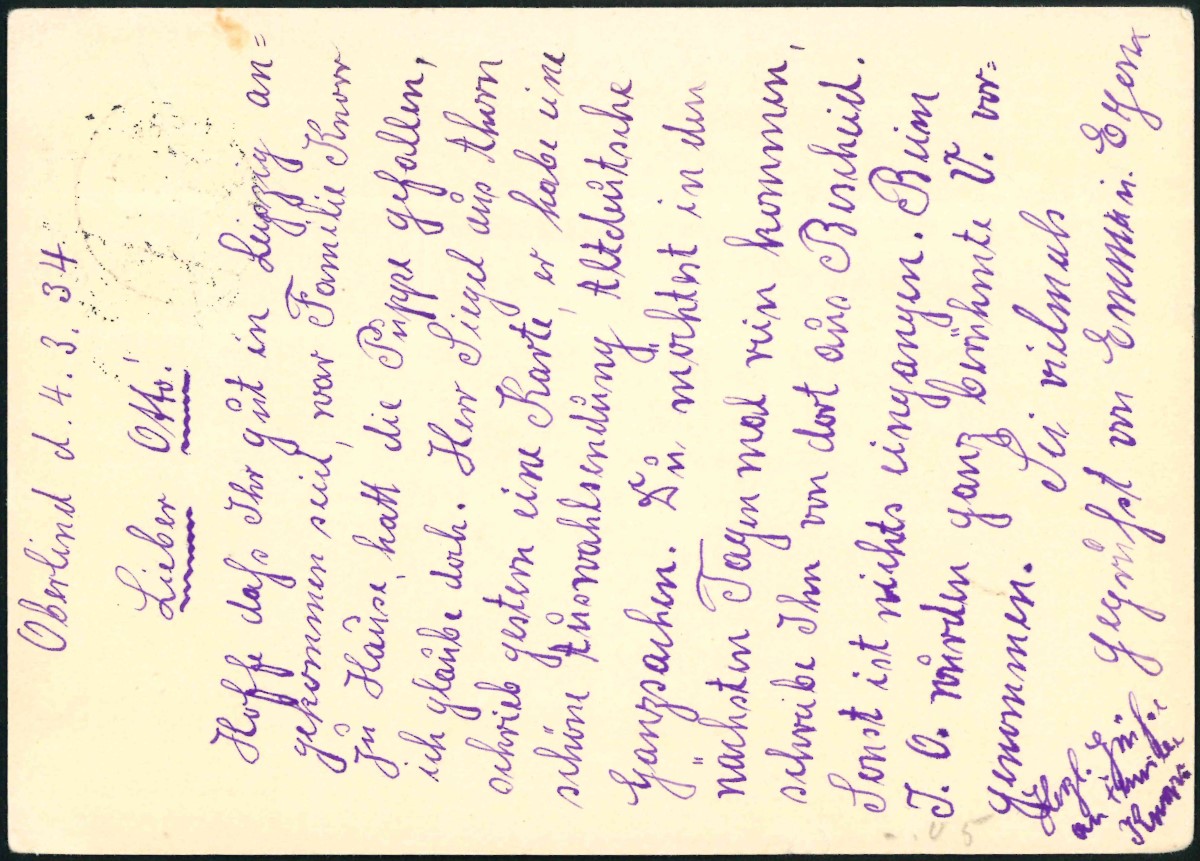 Oberlind d. 4. 3. 34.
Lieber Otto!
Hoffe dahs Ihr gut in Leipzig an=
gekommen seid, war Familie Knorr
zu Hause, hatt die Puppe gefallen,
ich glaube doch. Herr Siegel aus Thorn
schrieb gestern eine Karte, er habe eine
schöne Auswahlsendung Altdeutsche
Ganzsachen. Du möchtest in den
nächsten Tagen mal rein kommen,
schreibe Ihm von dort aus Bescheid.
Sonst ist nichts eingangen. Beim
I. O. wurden ganz berühmte V. vor=
genommen. Sei vielmals
gegrühst von Emma u. Egon
Herzl. Grühse
an Familie
Knorr